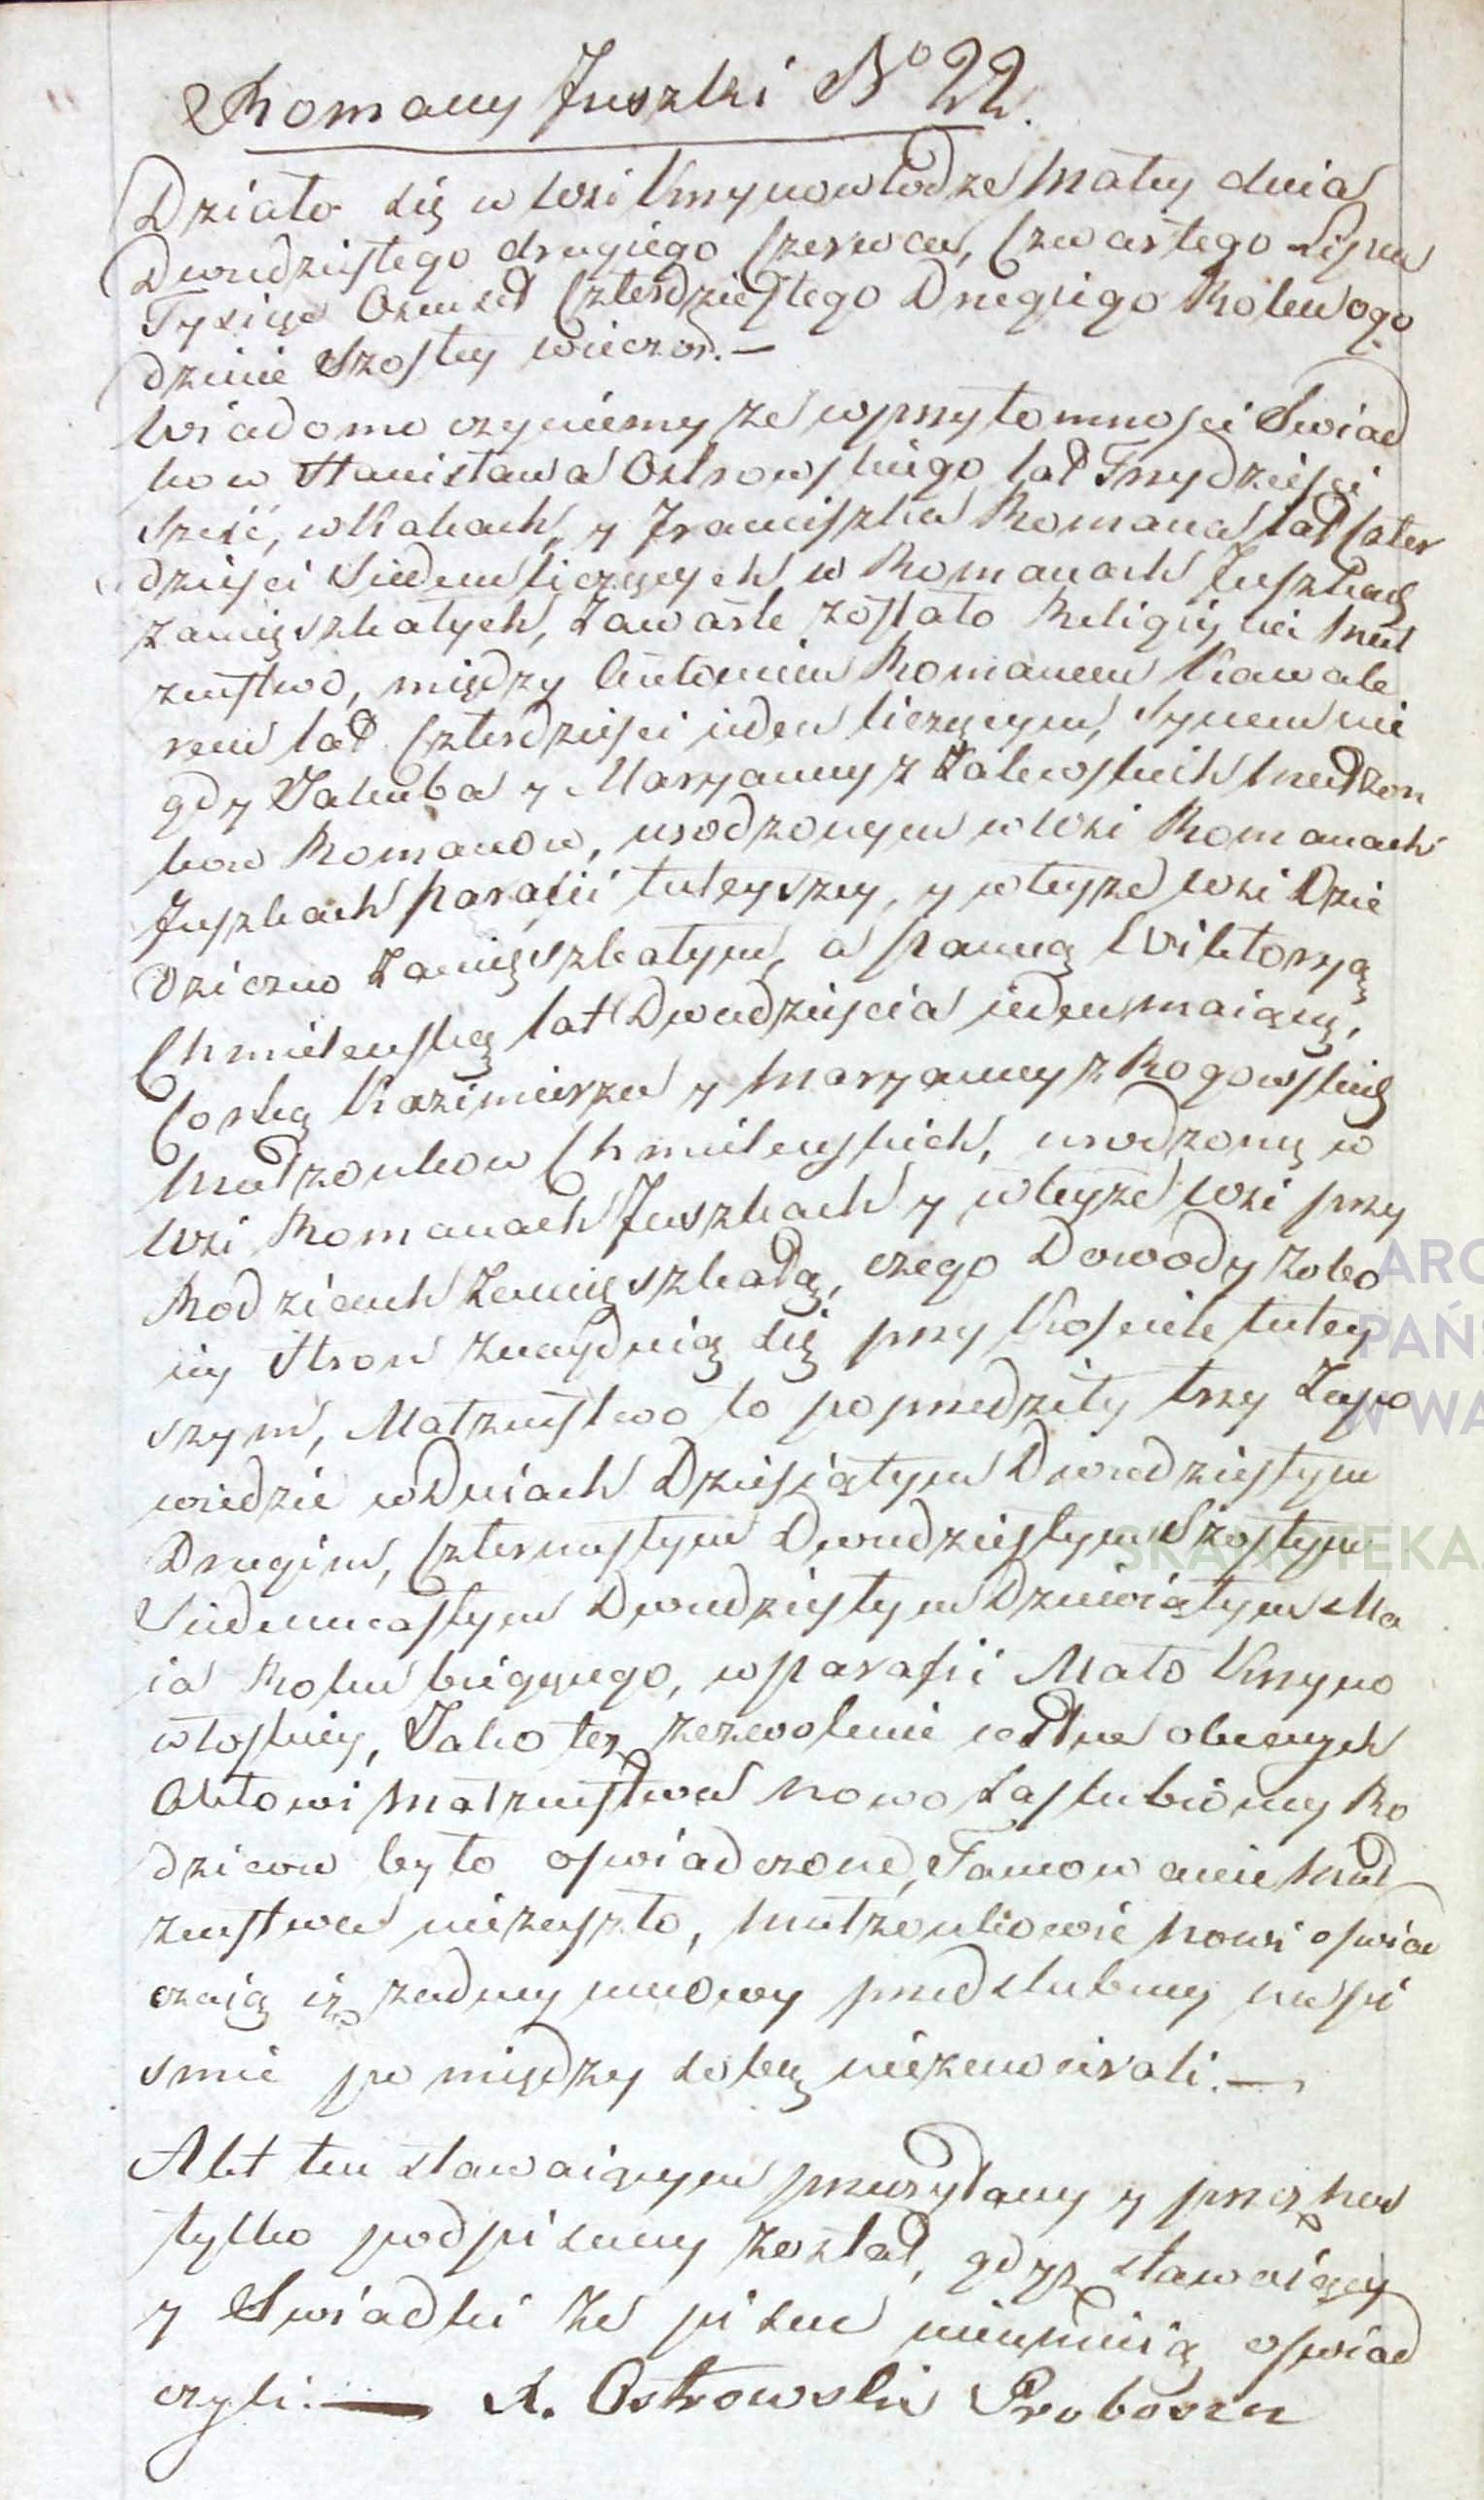 Romany Juszki No 22.
Działo się w Wsi Krzynowłodze Małey dnia
Dwudziestego drugiego Czerwca, Czwartego Lipca
Tysiąc Osmset Czterdziestego Drugiego Roku o go
dzinie Szostey wieczor. —
Wiadomo czyniemy ze w przytomnosci Swiad
kow Stanisława Ostrowskiego lat Trzydziesci
szesć, w Kakach, y Franciszka Romana lat Czter
dziesci Siedem liczących w Romanach Juszkach
zamięszkałych, Zawarte zostało Religijne Mał
zenstwo, między Antonim Romanem Kawale
rem lat Czterdziesci ieden liczącym, Synem nie
gdy Jakuba y Maryanny z Zalewskich Małzon
kow Romanow, urodzonym w Wsi Romanach
Juszkach parafii tuteyszey, y w teyze Wsi Dzie
dziczno Zamięszkałym, a Panną Wiktoryą
Chmielewską lat Dwadziescia ieden maiącą,
Corką Kazimierza y Maryanny z Rogowskich
Małzonkow Chmielewskich, urodzoną w
Wsi Romanach Juszkach y w teyze Wsi przy
Rodzicach Zamięszkałą, czego Dowody z obo
iey Stron znaydują się przy Kosciele tutey
szym, Małzenstwo to poprzedziły trzy Zapo
wiedzie w Dniach Dziesiątym Dwudziestym
Drugim, Czternastym Dwudziestym Szostym
Siedemnastym Dwudziestym Dziewiątym Ma
ia Roku biegącego, w parafii Mało Krzyno
włoskiey, Jako tez zezwolenie ustne obecnych
Aktowi Małzenstwa nowo Zaslubioney Ro
dzicow było oswiadczone, Tamowanie Mał
zenstwa niezaszło, Małzonkowie nowi oswiad
czaią iz zadney umowy przedslubney na pi
smie po między sobą niezawierali. —
Akt ten stawaiącym przeczytany y przez nas
tylko podpisany został, gdyz stawaiący
y Swiadki ze pisac nieumieią oswiad
czyli. — X. Ostrowski Proboszcz
ARC
PAŃS
W WA
SKANOTEKA